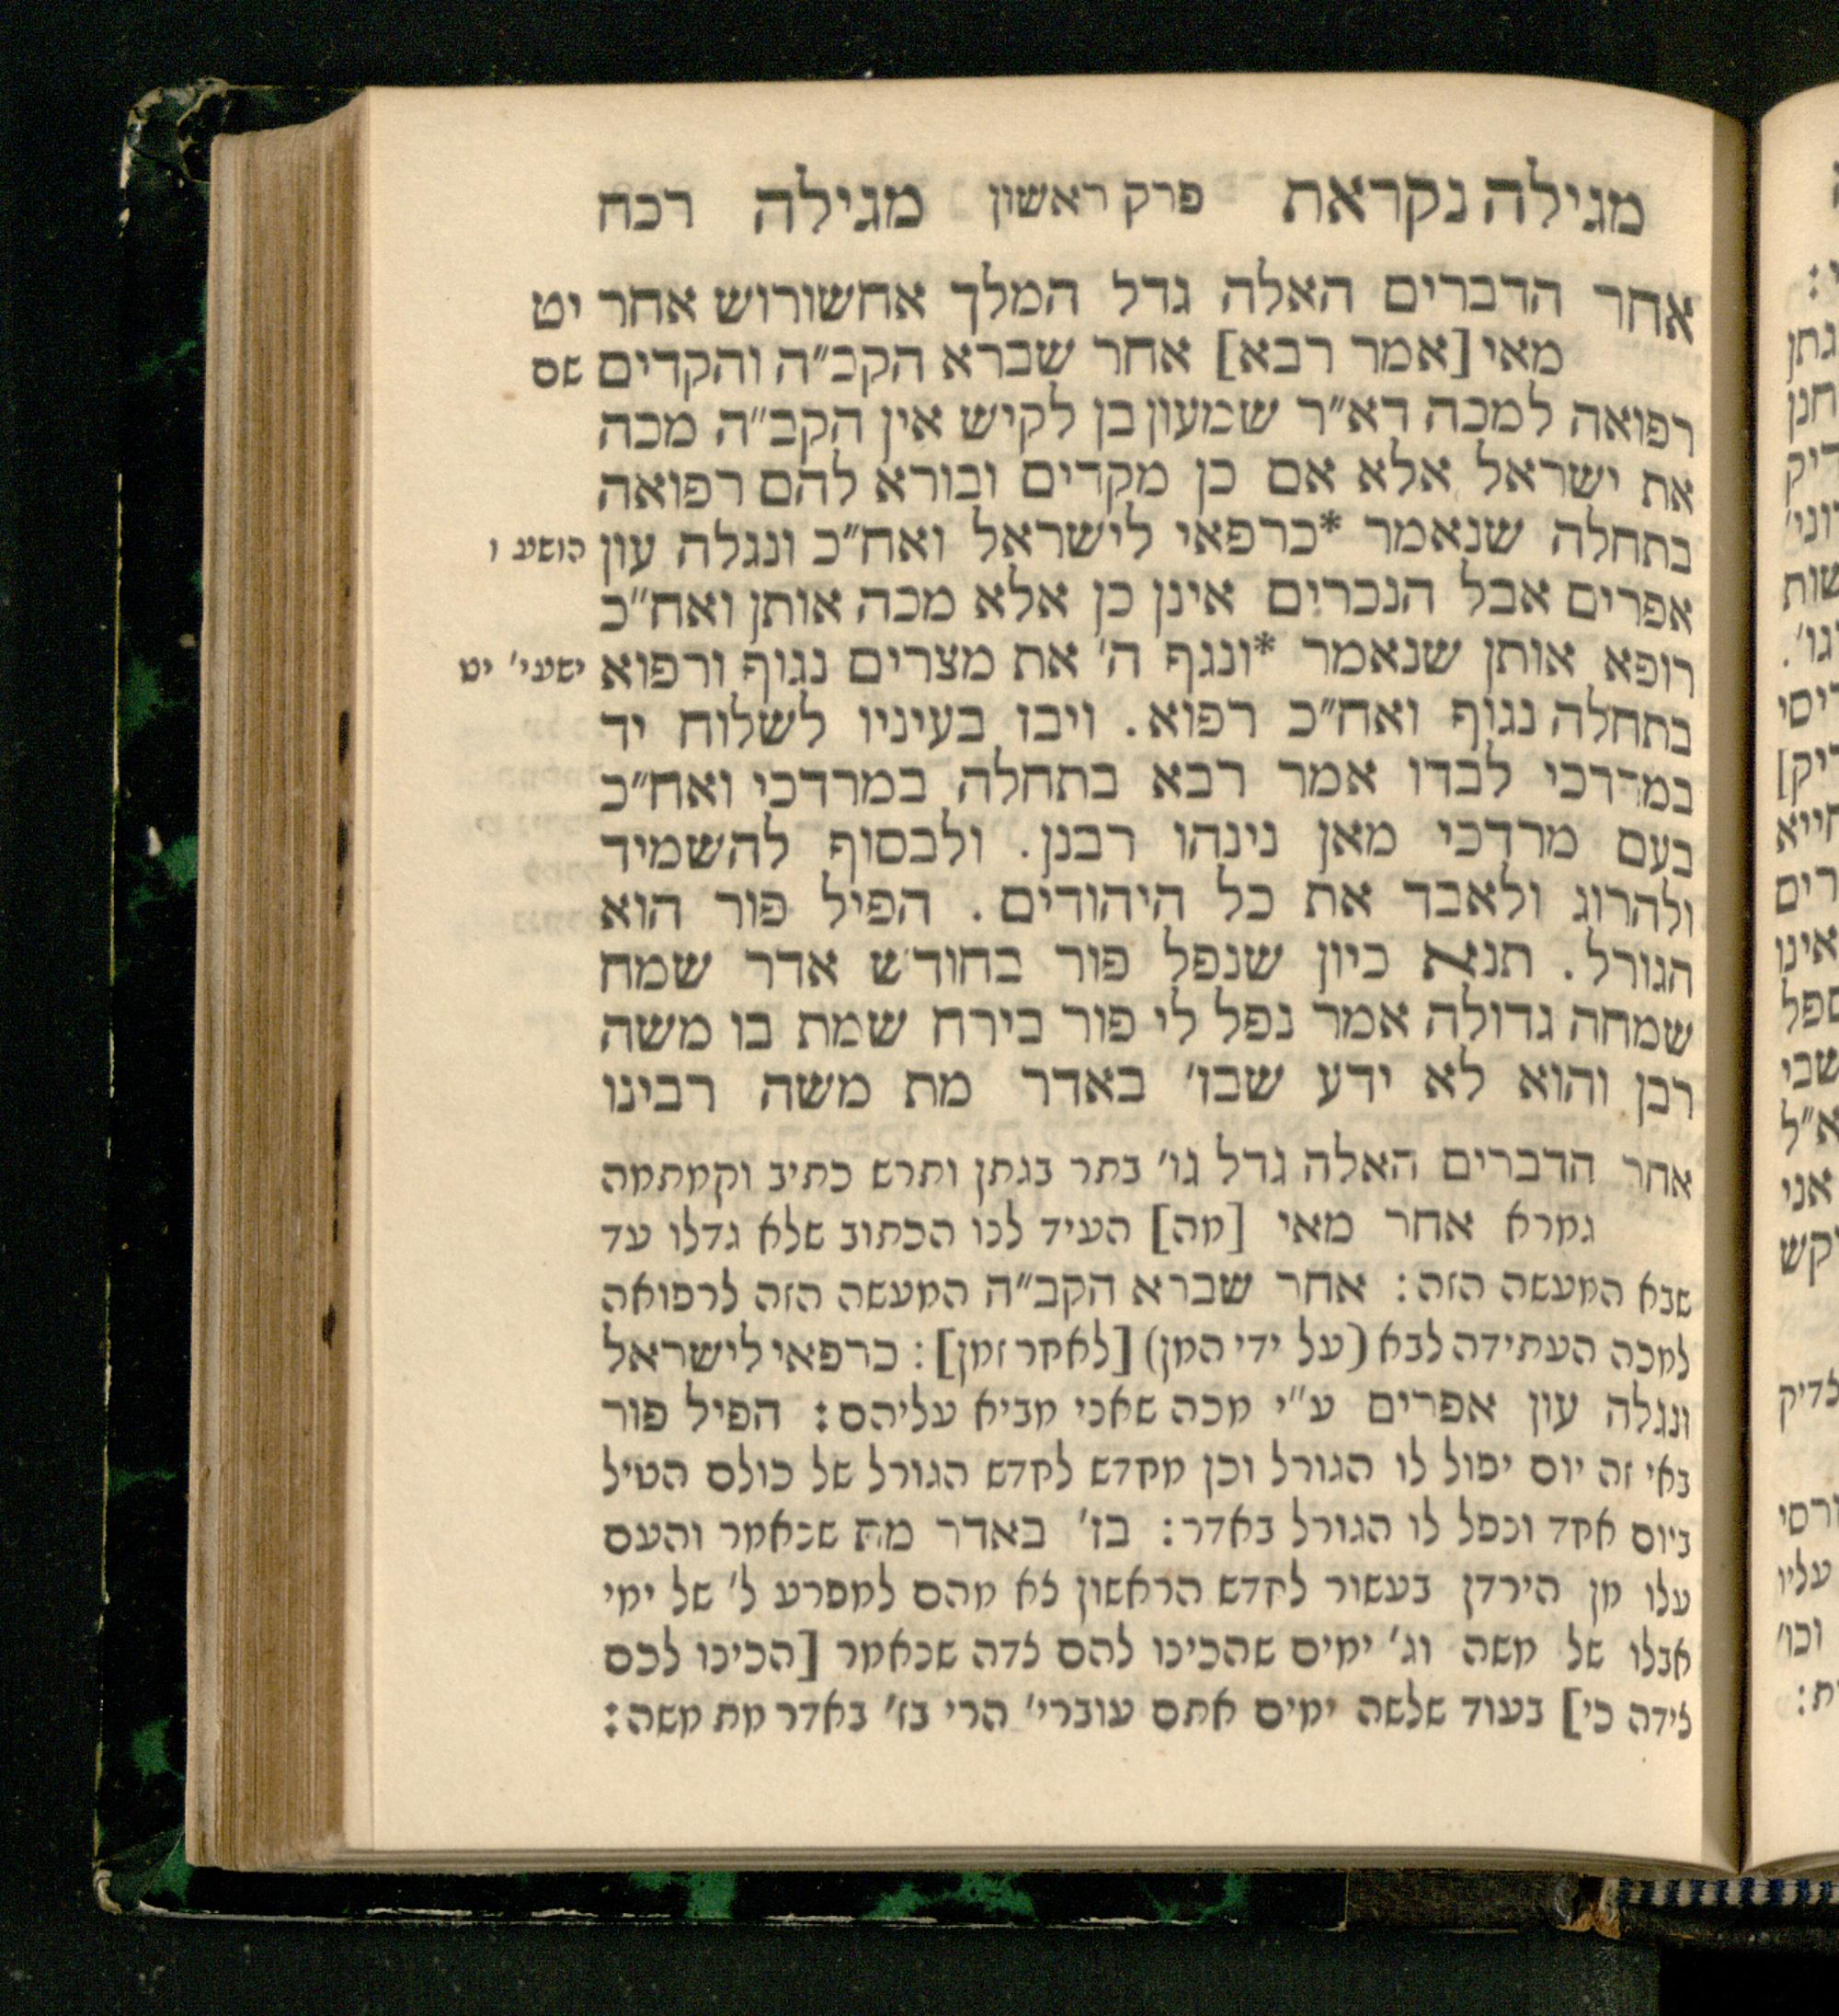 מגילה נקראת פרק ראשון מגילה רכח
אחר הדברים האלה גדל המלך אחשורוש אחר יט
מאי [אמר רבא] אחר שברא הקב״ה והקדים שם
רפואה למכה דא״ר שמעון בן לקיש אין הקב״ה מכה
את ישראל אלא אם כן מקדים ובורא להם רפואה
בתחלה שנאמר *כרפאי לישראל ואח״כ ונגלה עון הושע ו
אפרים אבל הנכרים אינן כן אלא מכה אותן ואח״כ
רופא אותן שנאמר *ונגף ה׳ את מצרים נגוף ורפוא ישעי׳ יט
בתחלה נגוף ואח״כ רפוא. ויבז בעיניו לשלוח יד
במרדכי לבדו אמר רבא בתחלה במרדכי ואח״כ
בעם מרדכי מאן נינהו רבנן. ולבסוף להשמיד
ולהרוג ולאבד את כל היהודים. הפיל פור הוא
הגורל. תנא כיון שנפל פור בחודש אדר שמח
שמחה גדולה אמר נפל לי פור בירח שמת בו משה
רבן והוא לא ידע שבז׳ באדר מת משה רבינו
אחר הדברים האלה גדל גו׳ בתר בגתן ותרש כתיב וקמתמה
גמרא אחר מאי [מה] העיד לנו הכתוב שלא גדלו עד
שבא המעשה הזה: אחר שברא הקב״ה המעשה הזה לרפואה
למכה העתידה לבא (על ידי המן) [לאחר זמן]: כרפאי לישראל
ונגלה עון אפרים ע״י מכה שאני מביא עליהם: הפיל פור
באי זה יום יפול לו הגורל וכן מחדש לחדש הגורל של כולם הטיל
ביום אחד ונפל לו הגורל באדר: בז׳ באדר מת שנאמר והעם
עלו מן הירדן בעשור לחדש הראשון צא מהם למפרע ל׳ של ימי
אבלו של משה וג׳ ימים שהכינו להם צדה שנאמר [הכינו לכם
צידה כי] בעוד שלשה ימים אתם עוברי׳ הרי בז׳ באדר מת משה: